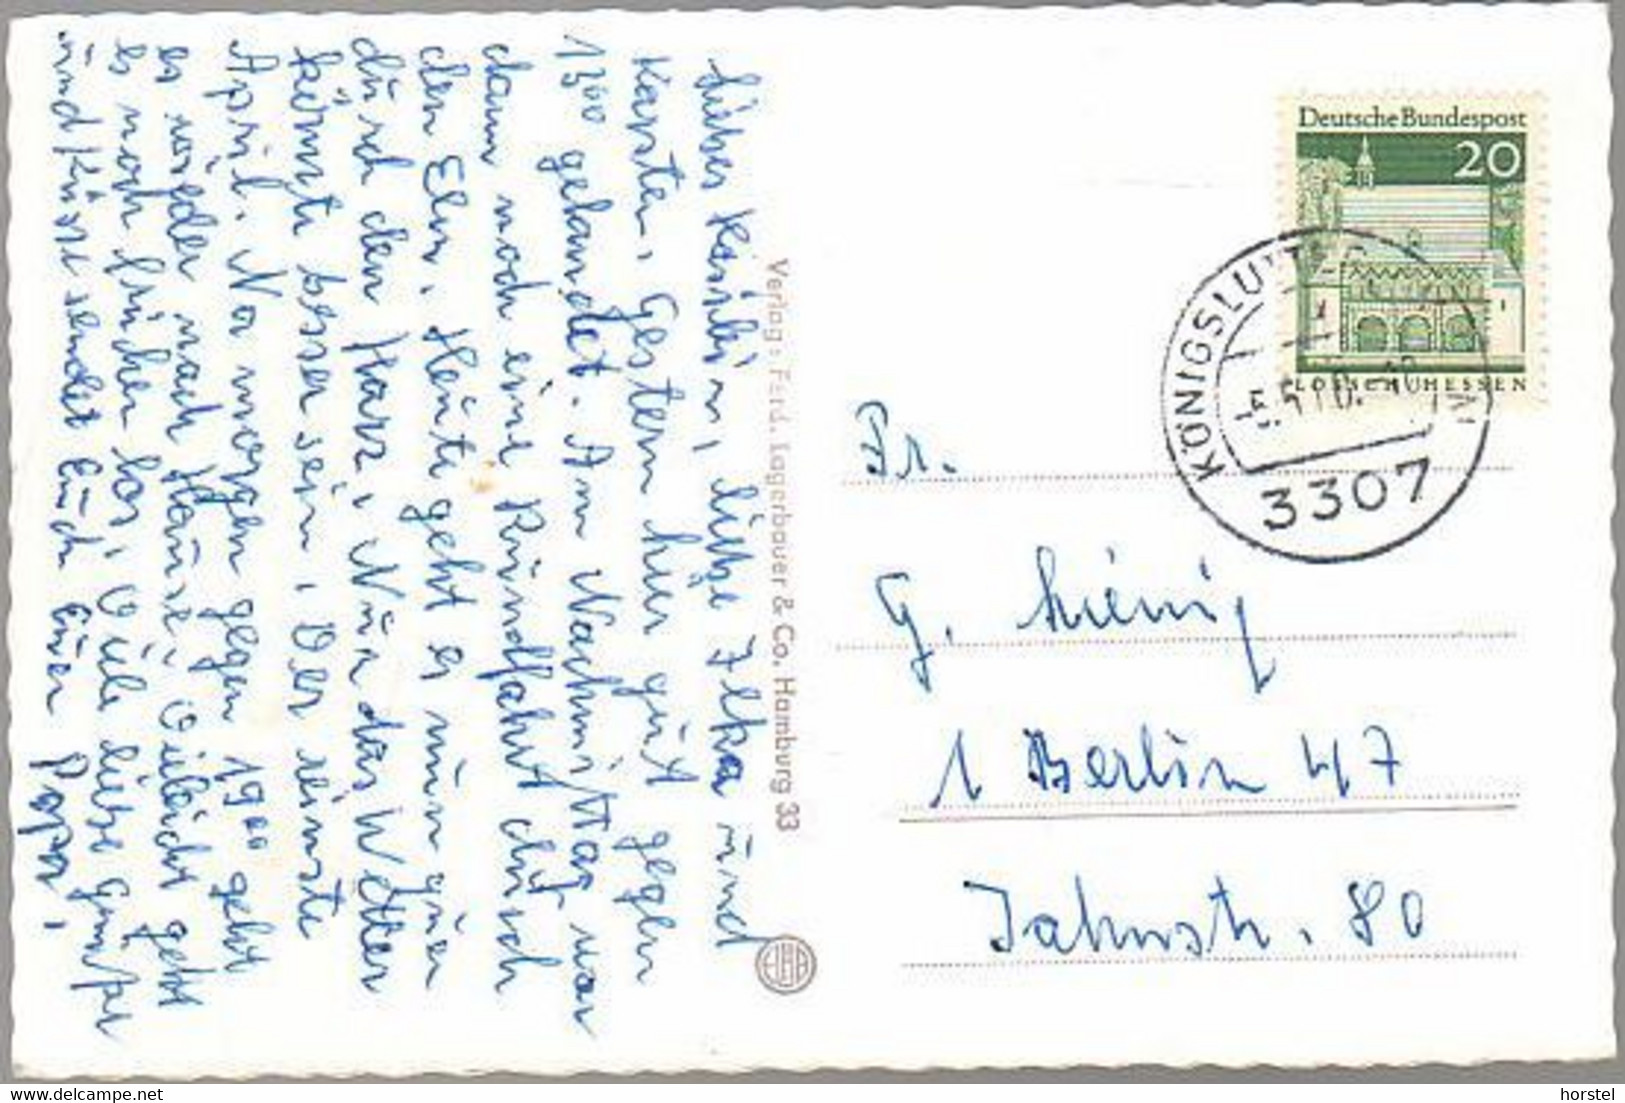 Liebes Kerstin, liebe Ilka und
Karsten. Gestern hier gut gegen
13⁰⁰ gelandet. Am Nachmittag war
dann noch eine Rundfahrt durch
den Elm. Heute geht es nun quer
durch den Harz. Nur das Wetter
könnte besser sein. Der reinste
April. Na morgen gegen 19⁰⁰ geht
es wieder nach Hause. Vileicht geht
es noch früher los. Viele liebe Grüße
und Küsse sendet Euch Euer Papa.
Verlag: Ferd. Lagerbauer & Co. Hamburg 33
Deutsche Bundespost
20
LORSCH/HESSEN
3307
Fr.
G.
1 Berlin 47
Jahnstr. 80
horstel